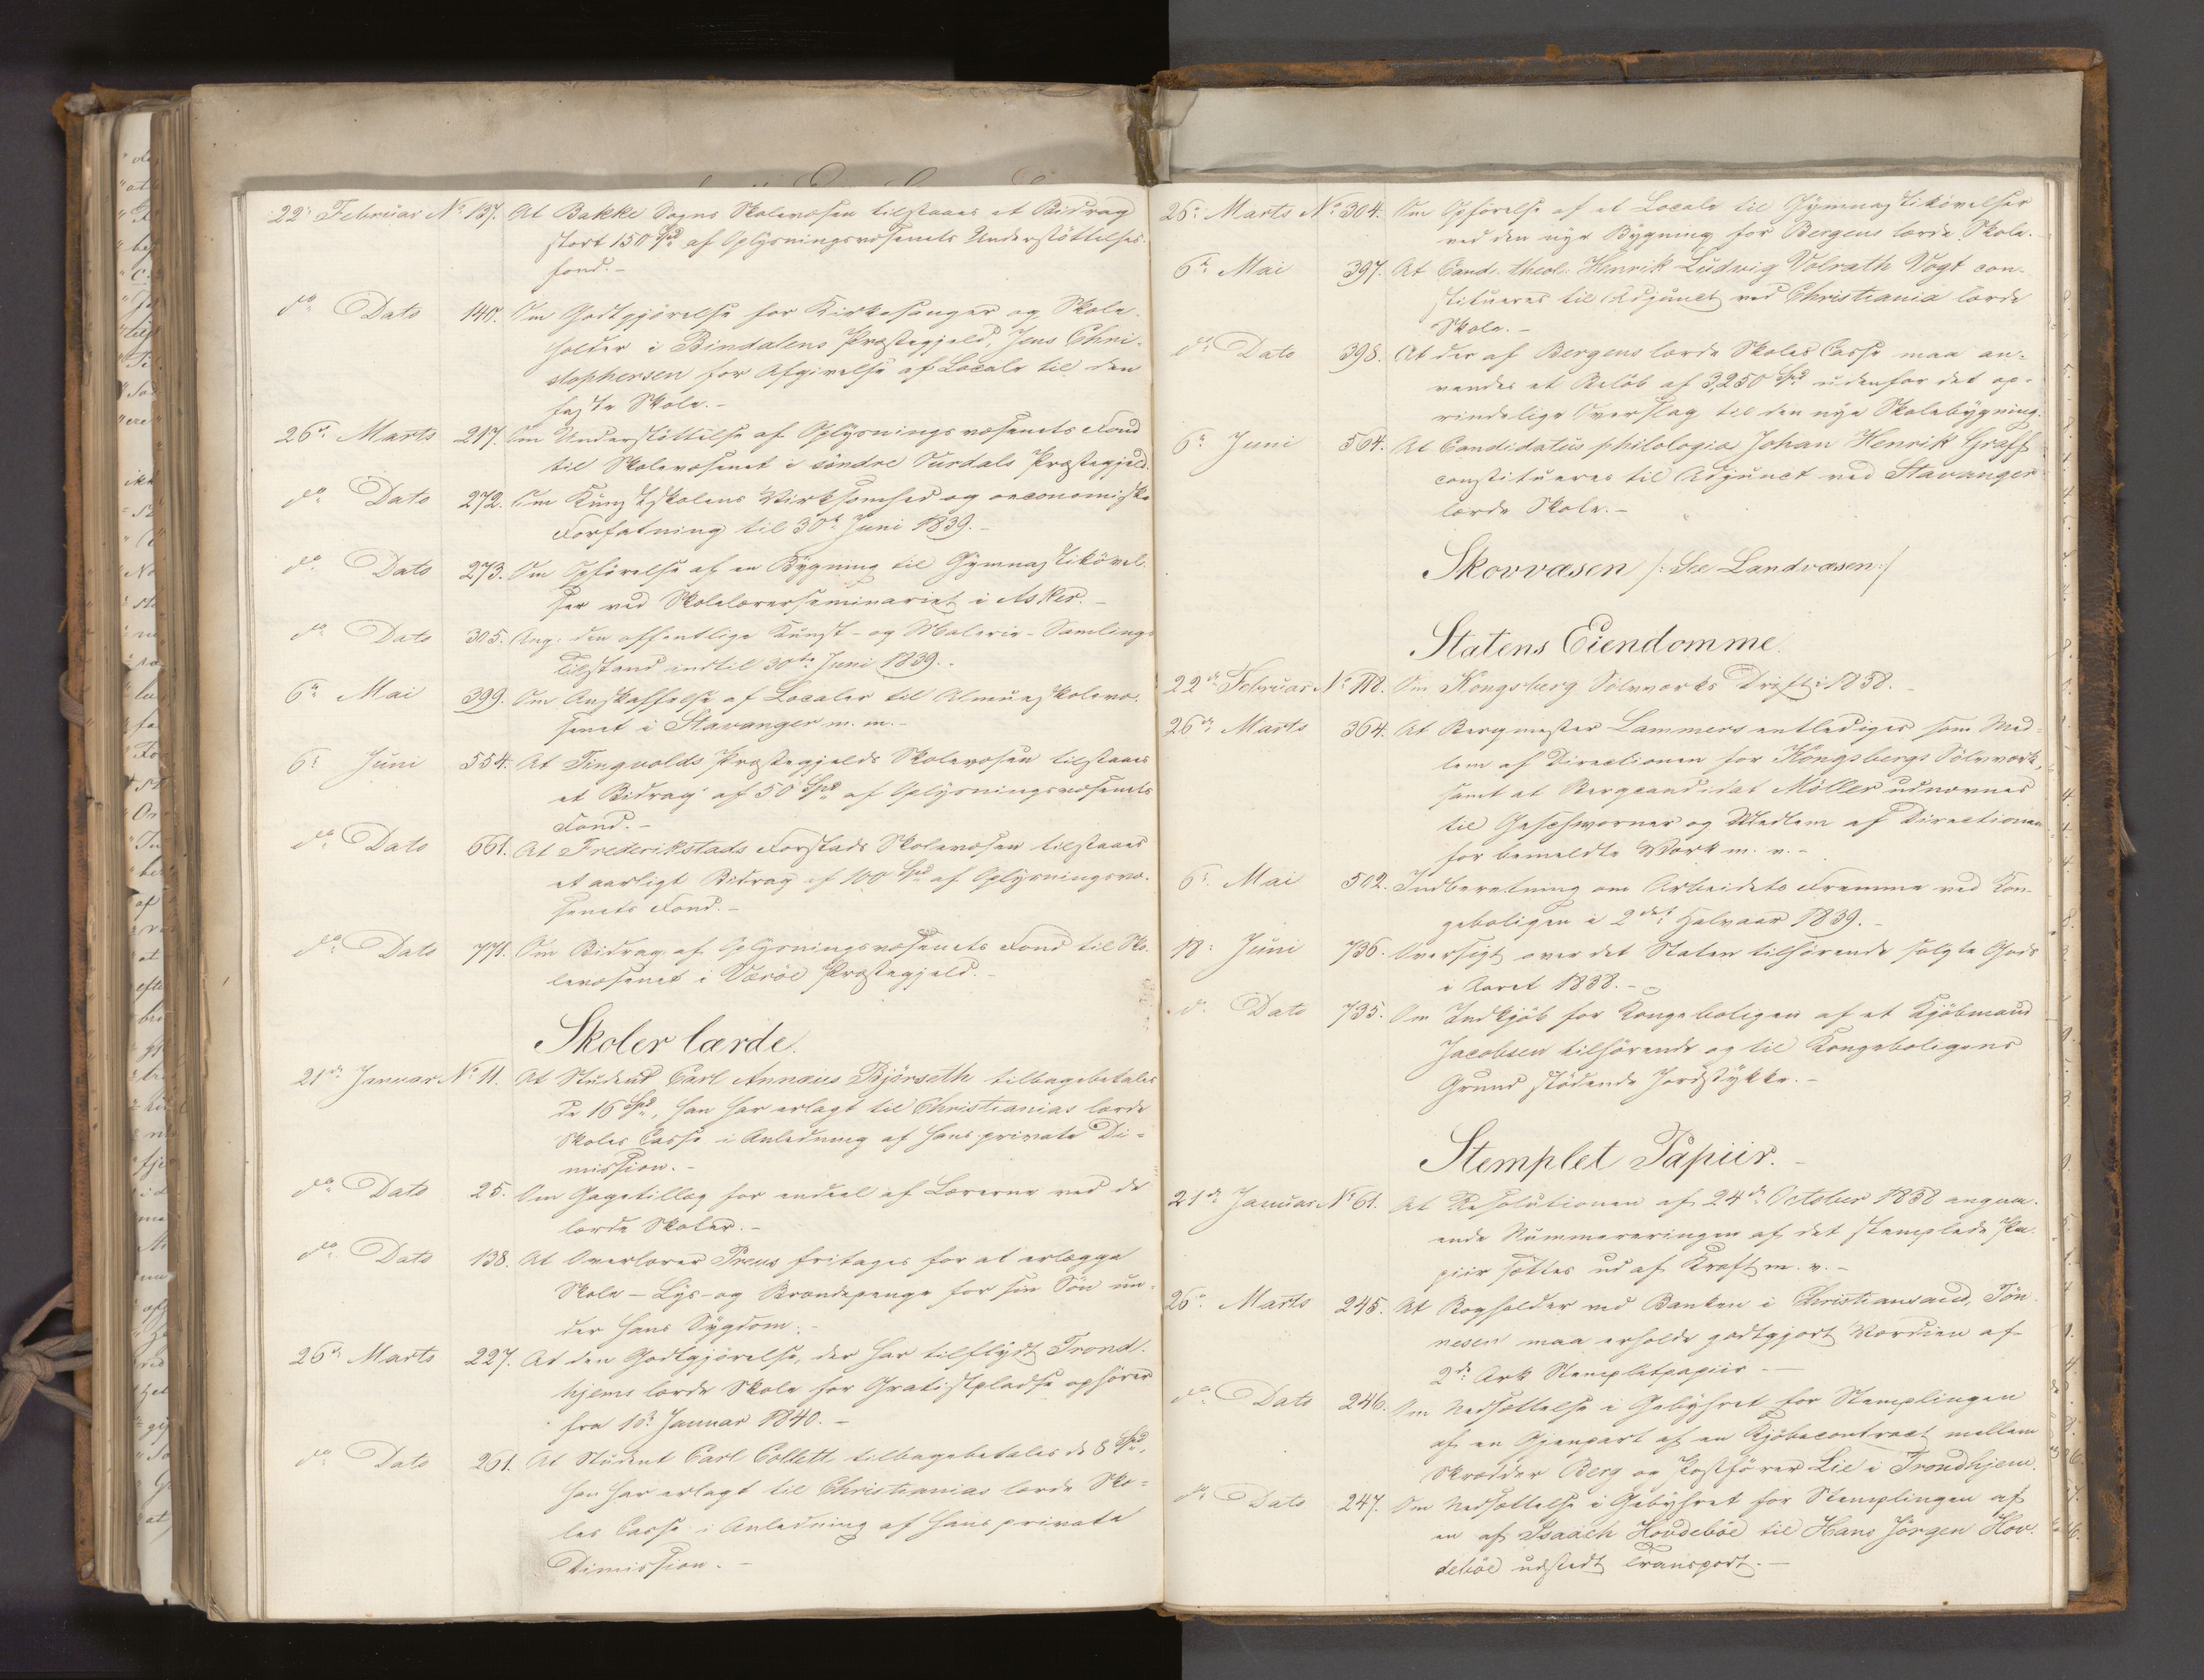 22de Februar No 137. At Bakke Sogns Skolevæsen tilstaaes et Bidrag
stort 150 Spd af Oplysningsvæsenets Understöttelses-
fond.-
do Dato 140. Om Godtgjörelse for Kirkesanger og Skole-
holder i Bindalens Præstegjeld, Jens Chri-
stophersen for Afgivelse af Locale til den
faste Skole.-
26de Marts 217. Om Understöttelse af Oplysningsvæsenets Fond
til Skolevæsenet i söndre Aurdals Præstegjeld.
do Dato 272. Om Kunstskolens Virksomhed og oeconomiske
Forfatning til 30te Juni 1839.-
do Dato 273. Om Opförelse af en Bygning til Gymnastikövel-
ser ved Skolelærerseminariet i Asker.-
do Dato 305. Ang. den offentlige Kunst- og Malerie-Samlings
Tilstand indtil 30te Juni 1839.-
6te Mai 399. Om Anskaffelse af Localer til Almueskolevæ-
senet i Stavanger m. m.-
6te Juni 554. At Tingvolds Præstegjelds Skolevæsen tilstaaes
et Bidrag af 50 Spd af Oplysningsvæsenets
Fond.-
do Dato 661. At Frederikstads Forstads Skolevæsen tilstaaes
et aarligt Bidrag af 100 Spd af Oplysningsvæ-
senets Fond.-
do Dato 771. Om Bidrag af Oplysningsvæsenets Fond til Sko-
levæsenet i Værøe Præstegjeld.-
Skoler lærde.
21de Januar No 11. At Student Carl Annæus Björseth tilbagebetales
de 16 Spd, han har erlagt til Christianias lærde
Skoles Casse i Anledning af hans private Di-
mission.-
do Dato 25. Om Gagetillæg for endeel af Lærerne ved de
lærde Skoler.-
do Dato 138. At Overlærer Preus fritages for at erlægge
Skole- Lys- og Brændepenge for sin Sön un-
der hans Sygdom.-
26de Marts 227. At den Godtgjörelse, der har tilflydt Trond-
hjems lærde Skole for Gratistpladse ophörer
fra 1ste Januar 1840.-
do Dato 261. At Student Carl Collett tilbagebetales de 8 Spd,
han har erlagt til Christianias lærde Sko-
les Casse i Anledning af hans private
Dimission.-
26de Marts No 304. Om Opförelse af et Locale til Gymnastikövelser
ved den nye Bygning for Bergens lærde Skole.-
6te Mai 397. At Cand. theol. Henrik Ludvig Volrath Vogt con-
stitueres til Adjunct ved Christiania lærde
Skole.-
do Dato 398. At der af Bergens lærde Skoles Casse maa an-
vendes et Belöb af 3,250 Spd udenfor det op-
rindelige Overslag til den nye Skolebygning.
6te Juni 564. At Candidatus philologiæ Johan Henrik Gräff
constitueres til Adjunct ved Stavanger
lærde Skole.-
Skovvæsen /: See Landvæsen :/
Statens Eiendomme.
22de Februar No 118. Om Kongsberg Sölvværks Drift i 1838.-
26de Marts 364. At Bergmester Lammers entlediges som Med-
lem af Directionen for Kongsbergs Sölvværk,
samt at Bergcandidat Möller udnævnes
til Geschworner og Medlem af Directionen
for bemeldte Værk m. v.-
6te Mai 502. Indberetning om Arbeidets Fremme ved Kon-
geboligen i 2det Halvaar 1839.-
18: Juni 736. Oversigt over det Staten tilhörende solgte Gods
i Aaret 1838.-
do Dato 735. Om Indkjöb for Kongeboligen af et Kjöbmand
Jacobsen tilhörende og til Kongeboligens
Grund stödende Jordstykke.-
Stemplet Papiir.-
21de Januar No 61. At Resolutionen af 24de October 1838 angaa-
ende Nummereringen af det stemplede Pa-
piir sættes ud af Kraft m. v.-
26de Marts 245. At Bogholder ved Banken i Christiansand, Tön-
nesen maa erholde godtgjort Værdien af
2de Ark Stempletpapiir.-
do Dato 246. Om Nedsættelse i Gebyhret for Stemplingen
af en Gjenpart af en Kjöbecontract mellem
Skrædder Berg og Postförer Lie i Trondhjem.
do Dato 247. Om Nedsættelse i Gebyhret for Stemplingen af
en af Isaach Hovdebøe til Hans Jörgen Hov-
debøe udstedt Transport.-